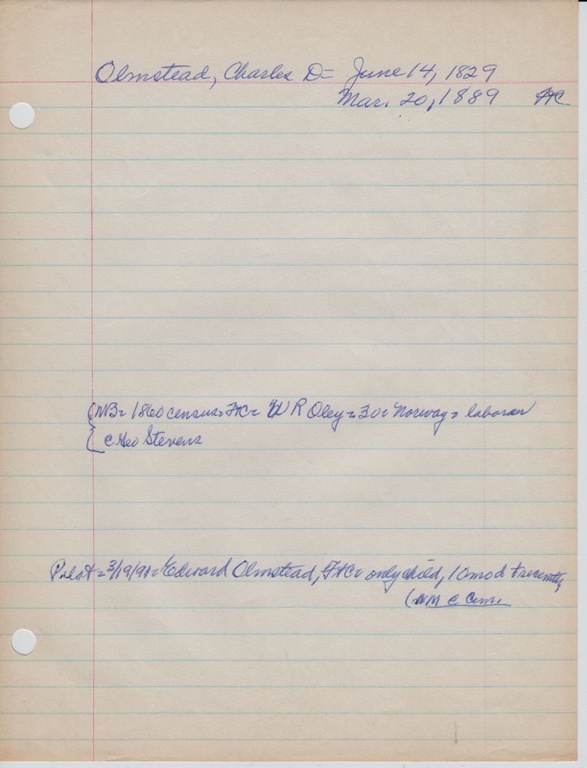 Olmstead, Charles D = June 14, 1829
Mar. 20, 1889 FTC
(NB = 1860 census = FTC = R Oley = 30 = Norway = laborer
( c Geo Stevens
Pilot = 3/19/91 = Edward Olmstead, FTC = only child, 10 mo d recently
(NM c Cem.